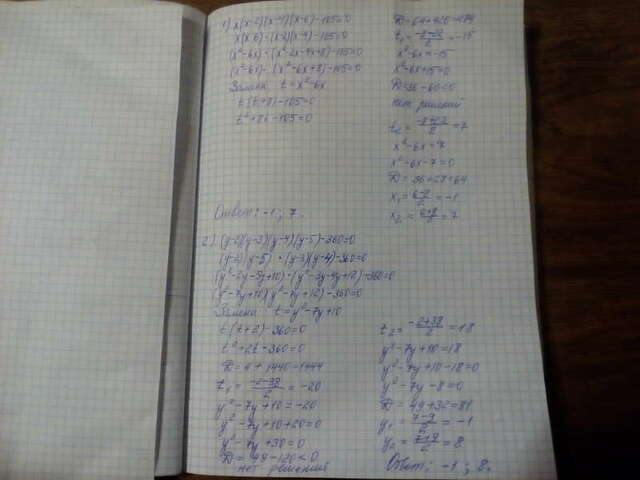 1) x(x-2)(x-4)(x-6)-105=0
x(x-6)·(x-2)(x-4)-105=0
(x²-6x)·(x²-2x-4x+8)-105=0
(x²-6x)·(x²-6x+8)-105=0
Замена t=x²-6x
t(t+8)-105=0
t²+8t-105=0
D=64+420=484
t₁=(-8-22)/2=-15
x²-6x=-15
x²-6x+15=0
D=36-60<0
нет решений
t₂=(-8+22)/2=7
x²-6x=7
x²-6x-7=0
D=36+28=64
x₁=(6-8)/2=-1
x₂=(6+8)/2=7
Ответ: -1; 7.
2) (y-2)(y-3)(y-4)(y-5)-360=0
(y-2)(y-5)·(y-3)(y-4)-360=0
(y²-2y-5y+10)·(y²-3y-4y+12)-360=0
(y²-7y+10)(y²-7y+12)-360=0
Замена t=y²-7y+10
t(t+2)-360=0
t²+2t-360=0
D=4+1440=1444
t₁=(-2-38)/2=-20
y²-7y+10=-20
y²-7y+10+20=0
y²-7y+30=0
D=49-120<0
нет решений
t₂=(-2+38)/2=18
y²-7y+10=18
y²-7y+10-18=0
y²-7y-8=0
D=49+32=81
y₁=(7-9)/2=-1
y₂=(7+9)/2=8
Ответ: -1; 8.